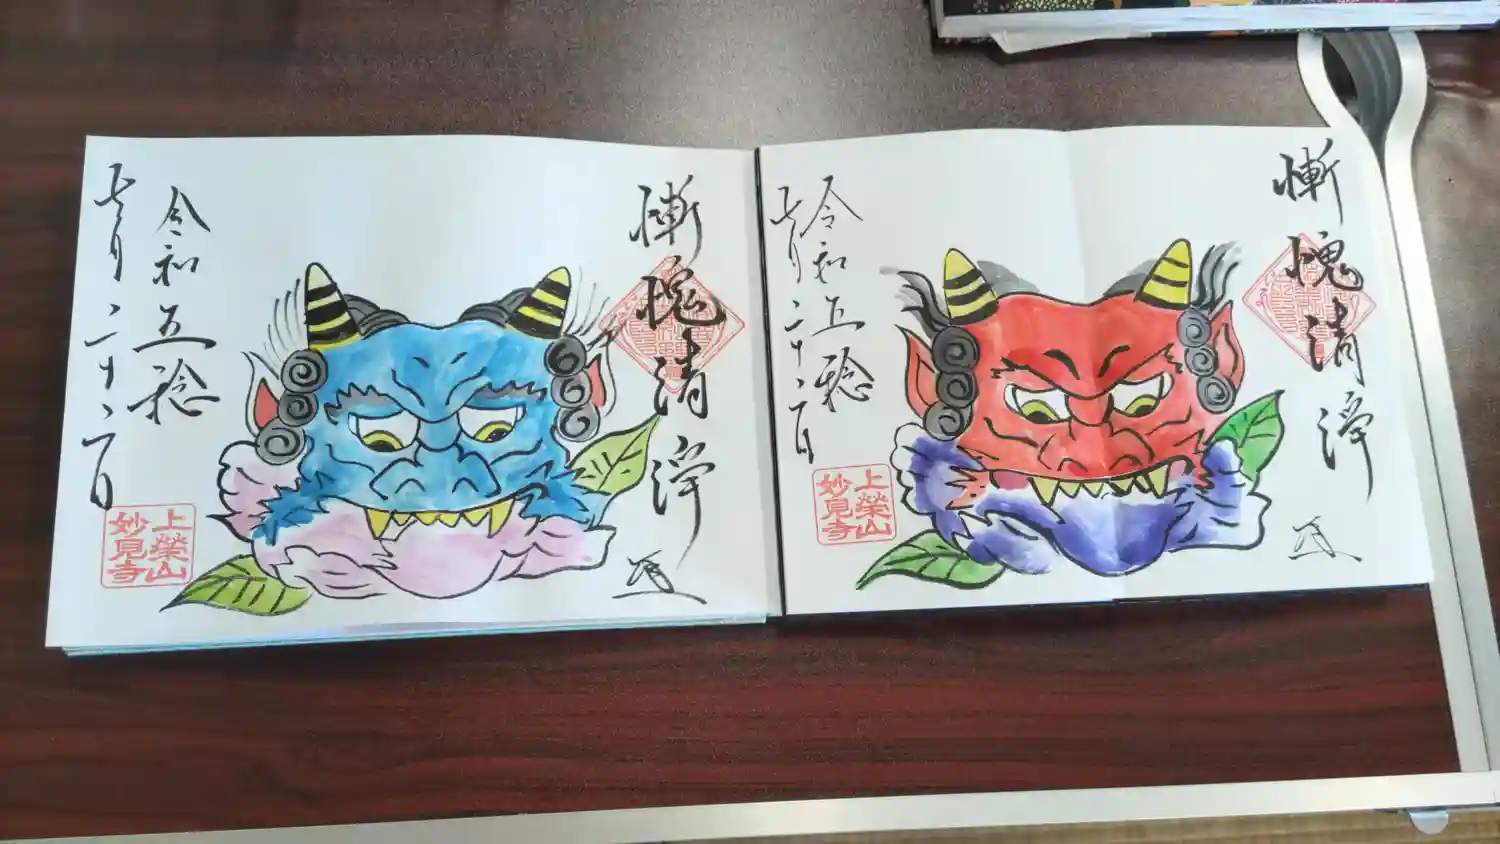 慚愧清淨
令和五稔
七月二十二日
上榮山
妙見寺
慚愧清淨
令和五稔
七月二十二日
上榮山
妙見寺